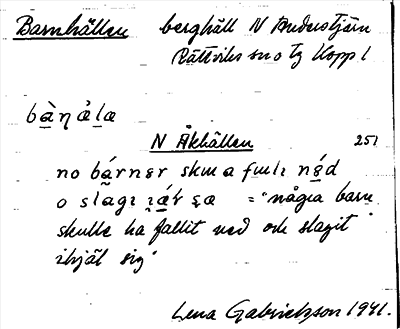 Barnhällen berghäll N Andustjärn
Rättviks sn o tg Kopp l
bàηåla
N Åkhällen 251
no bárner skua fali néd
o slagi sæ = "några barn
skulle ha fallit ned och slagit
ihjäl sig"
Lena Gabrielsson 1941.